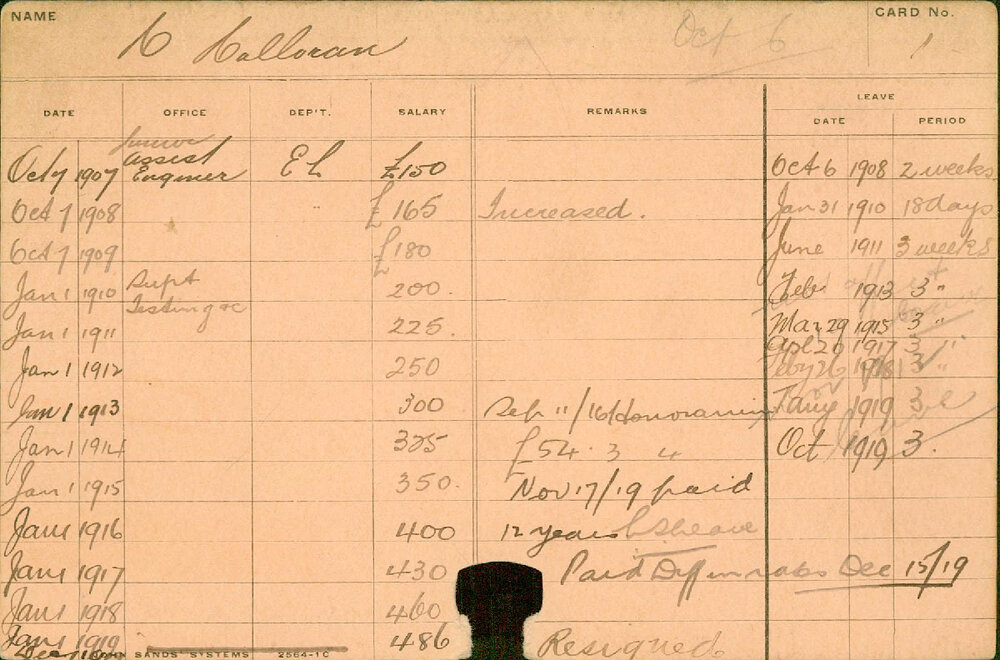 NAME CARD No.
Halloran Oct 6 1
LEAVE
DATE OFFICE DEP'T. SALARY REMARKS DATE PERIOD
Junior
Oct 7 1907 Assist Engineer EL £150 Oct 6 1908 2 weeks
Oct 7 1908 £165 Increased. Jan 31 1910 18 days
Oct 7 1909 £180 June 1911 3 weeks
Jan 1 1910 Supt Testing &c 200. Feb 1913 3 "
Jan 1 1911 225. Mar 29 1915 3 "
Apl 20 1917 3 "
Jan 1 1912 250 Feby 26 1918 3 "
Jan 1 1913 300 Sep 11/16 Honorarium Jany 1919 3
Jan 1 1914 325 £54. 3 4 Oct 1919 3.
Jan 1 1915 350. Nov 17/19 paid
Jan 1 1916 400 12 years leave
Jan 1 1917 430 Paid Diff in rates Dec 15/19
Jan 1 1918 460
Jan 1 1919 486 Resigned
SANDS SYSTEMS 2564-1C